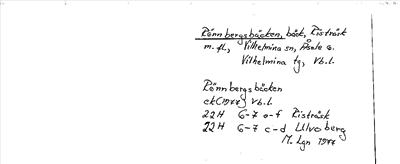 Rönnbergsbäcken, bäck, Risträsk
m. fl., Vilhelmina sn, Åsele
Vilhelmina tg, Vb.l.
Rönnbergsbäcken
ek (1977) Vb.l.
22H 6-7 e-f Risträsk
22H 6-7 c-d Ulvoberg
M. Lgn 1977